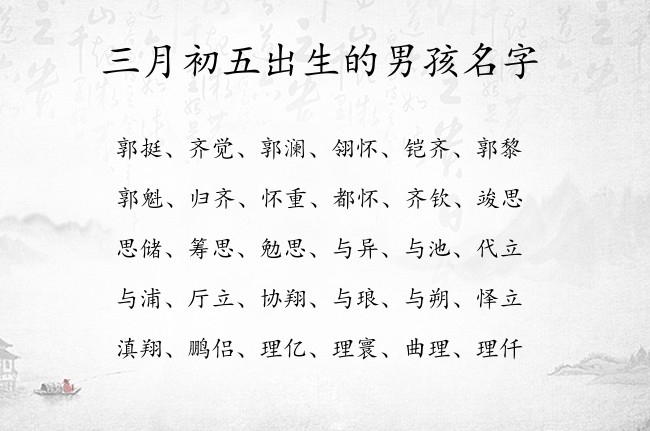 三月初五出生的男孩名字
郭挺、齐觉、郭澜、翎怀、铠齐、郭黎
郭魁、归齐、怀重、都怀、齐钦、竣思
思储、筹思、勉思、与异、与池、代立
与浦、厅立、协翔、与琅、与朔、怿立
滇翔、鹏侣、理亿、理寰、曲理、理仟